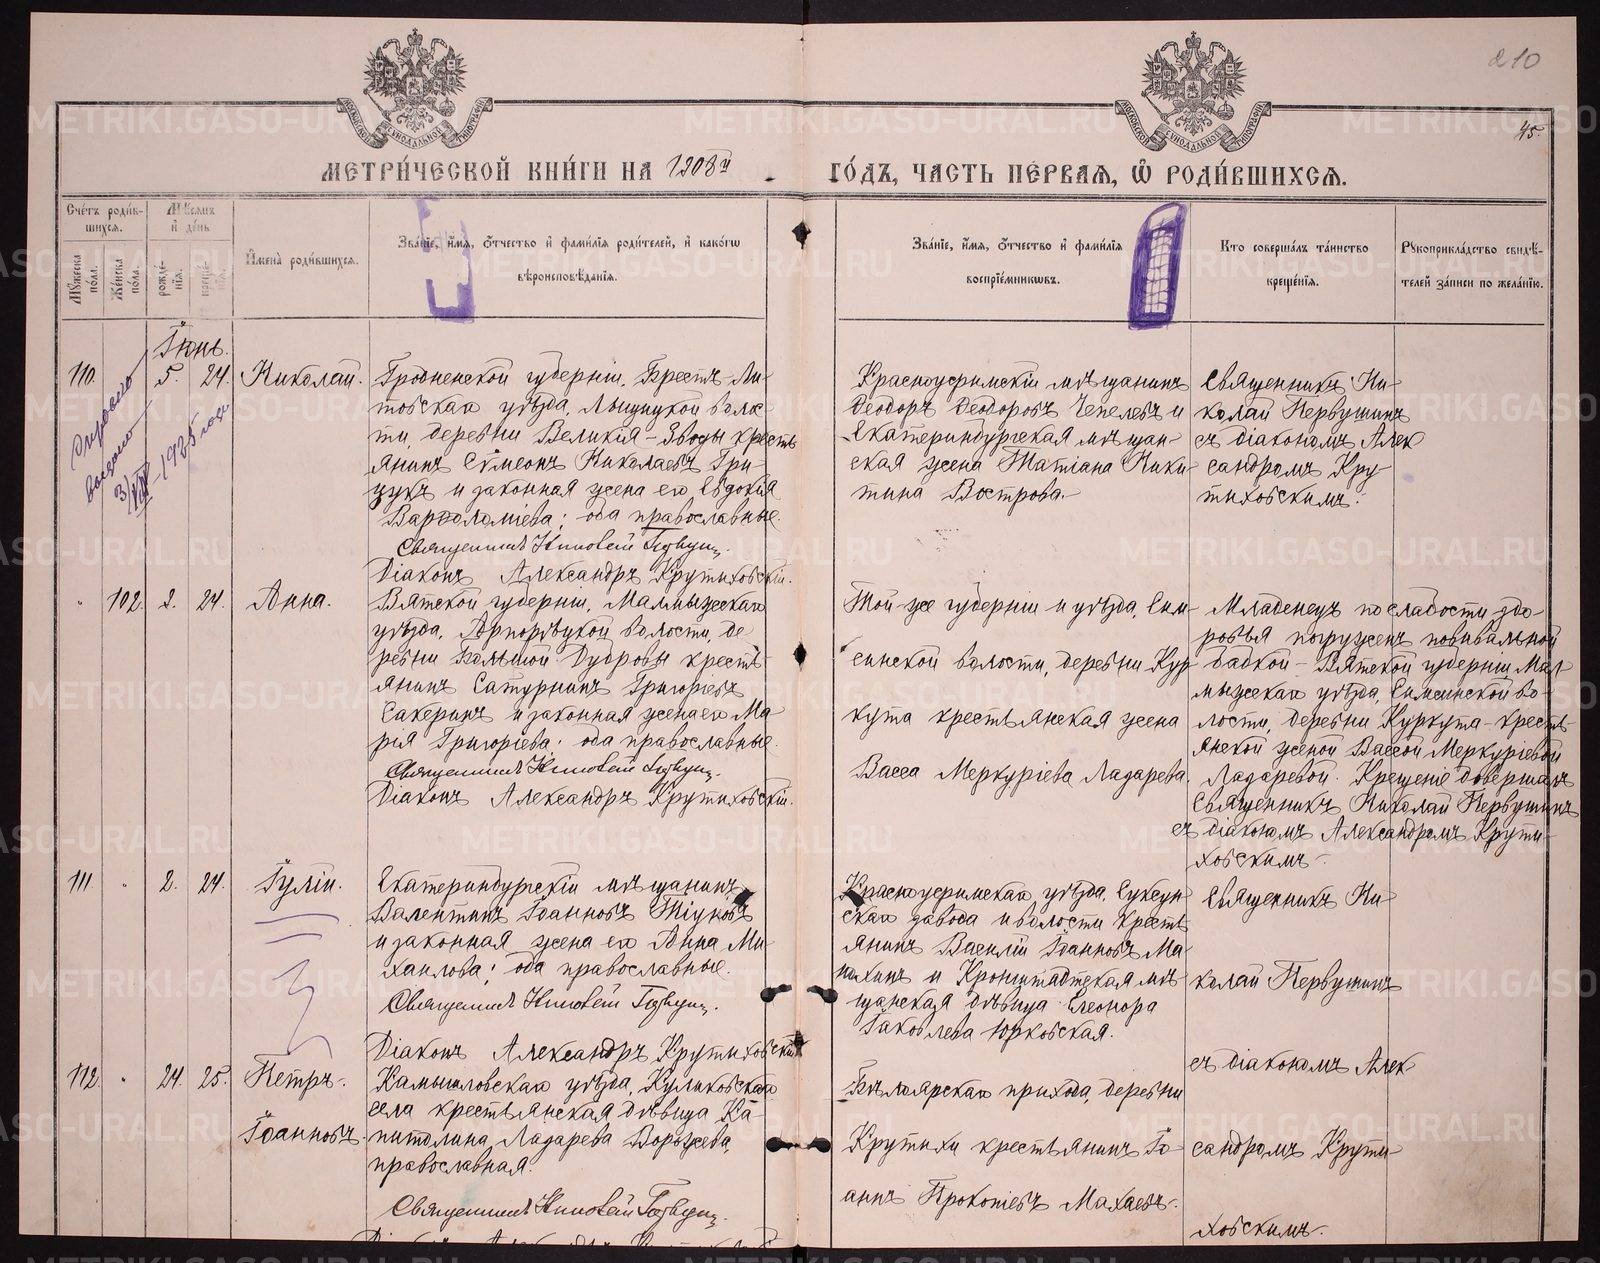 210
45.
МЕТРИ́ЧЕСКОЙ КНИ́ГИ НА 1908й ГО́ДЪ, ЧАСТЬ ПЕ́РВАЯ, Ѡ РОДИ́ВШИХСЯ.
Сче́тъ роди́в-
шихся.
Му́жеска по́ла.
Же́нска по́ла.
Мѣ́сяцъ
и́ де́нь
рожде́-
нїѧ.
креще́-
нїѧ.
И҆мена̀ роди́вшихсѧ.
Зва́нїе, и́мѧ, ѻ҆́тчество и҆ фами́лїѧ роди́телей, и҆ како́гѡ
вѣроисповѣ́данїѧ.
Зва́нїе, и́мѧ, ѻ҆́тчество и҆ фами́лїѧ
воспрїе́мникѡвъ.
Кто соверша́лъ та́инство
креще́нїѧ.
Рꙋкоприкла́дство свидѣ́-
телей за́писи по жела́нїю.
Іюнь.
110.
5.
24.
Николай.
Гродненской губерніи, Брестъ-Ли-
товскаго уѣзда, Лыщицкой волос-
ти, деревни Великія-Зводы кресть
янинъ Сѵмеонъ Николаевъ Гри-
цукъ и законная жена его Евдокія
Варѳоломіева; оба православные.
Священникъ Николай Первушинъ.
Діаконъ Александръ Крутиховскій.
Красноуфимскій мѣщанинъ
Ѳеодоръ Ѳеодоровъ Чепелевъ и
Екатеринбургская мѣщан-
ская жена Татіана Ники-
тина Вострова.
Священникъ Ни-
колай Первушинъ
съ діакономъ Алек
сандромъ Кру-
тиховскимъ.
1925 года
102.
2.
24.
Анна.
Вятской губерніи, Малмыжскаго
уѣзда, волости, де
ревни Большой Дубровы кресть-
янинъ Сатурнинъ Григорьевъ
Сакеринъ и законная жена его Ма-
рія Григоріева; оба православные.
Священникъ Николай Первушинъ.
Діаконъ Александръ Крутиховскій.
Той-же губерніи и уѣзда, Сим-
синской волости, деревни Кур
кута крестьянская жена
Васса Меркуріева Лазарева.
Младенецъ по слабости здо-
ровья погруженъ повивальной
бабкой - Вятской губерніи Мал
мыжскаго уѣзда, Симсинской во-
лости, деревни Куркута - кресть-
янской женой Вассой Меркуріевой
Лазаревой. Крещеніе довершалъ
Священникъ Николай Первушинъ
съ діакономъ Александромъ Крути-
ховскимъ.
111
2.
24.
Іулій.
Екатеринбургскій мѣщанинъ
Валентинъ Іоанновъ Тіуновъ
и законная жена его Анна Ми-
хаилова; оба православные.
Священникъ Николай Первушинъ.
Діаконъ Александръ Крутиховскій
Красноуфимскаго уѣзда, Суксун-
скаго завода и волости кресть
янинъ Василій Іоанновъ Ма-
нохинъ и Кронштадтская мѣ
щанская дѣвица Елеонора
Іаковлева Юрковская.
Священникъ Ни
колай Первушинъ
съ діакономъ Алек
сандромъ Крути
ховскимъ.
112.
24.
25.
Петръ.
Іоанновъ.
Камышловскаго уѣзда, Куликовскаго
села крестьянская дѣвица Ка-
питолина Лазарева Ворожева,
православная.
Священникъ Николай Первушинъ.
Бѣлоярскаго прихода, деревни
Крутихи крестьянинъ Іо-
аннъ Прокопіевъ Махаевъ.